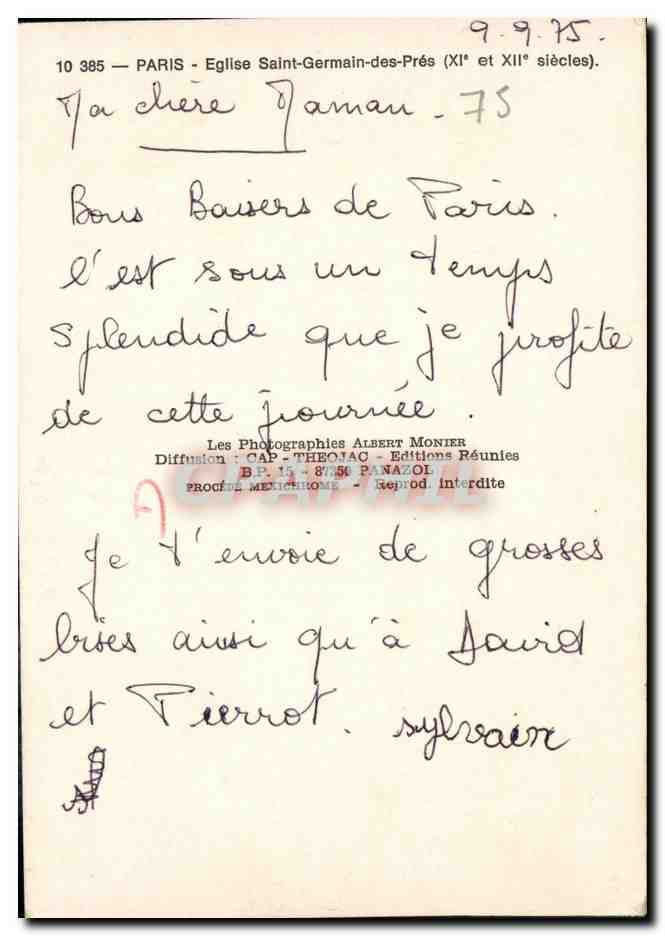 9.9.75.
10 385 — PARIS - Eglise Saint-Germain-des-Prés (XIe et XIIe siècles).
Ma chère Maman. 75
Bons Baisers de Paris.
C'est sous un temps
splendide que je profite
de cette journée.
Les Photographies ALBERT MONIER
Diffusion : CAP - THEOJAC - Editions Réunies
B.P. 15 - 87350 PANAZOL
PROCÉDÉ MEXICHROME - Reprod. interdite
CPAPHIL
Je t'envoie de grosses
bises ainsi qu'à David
et Pierrot. sylvain